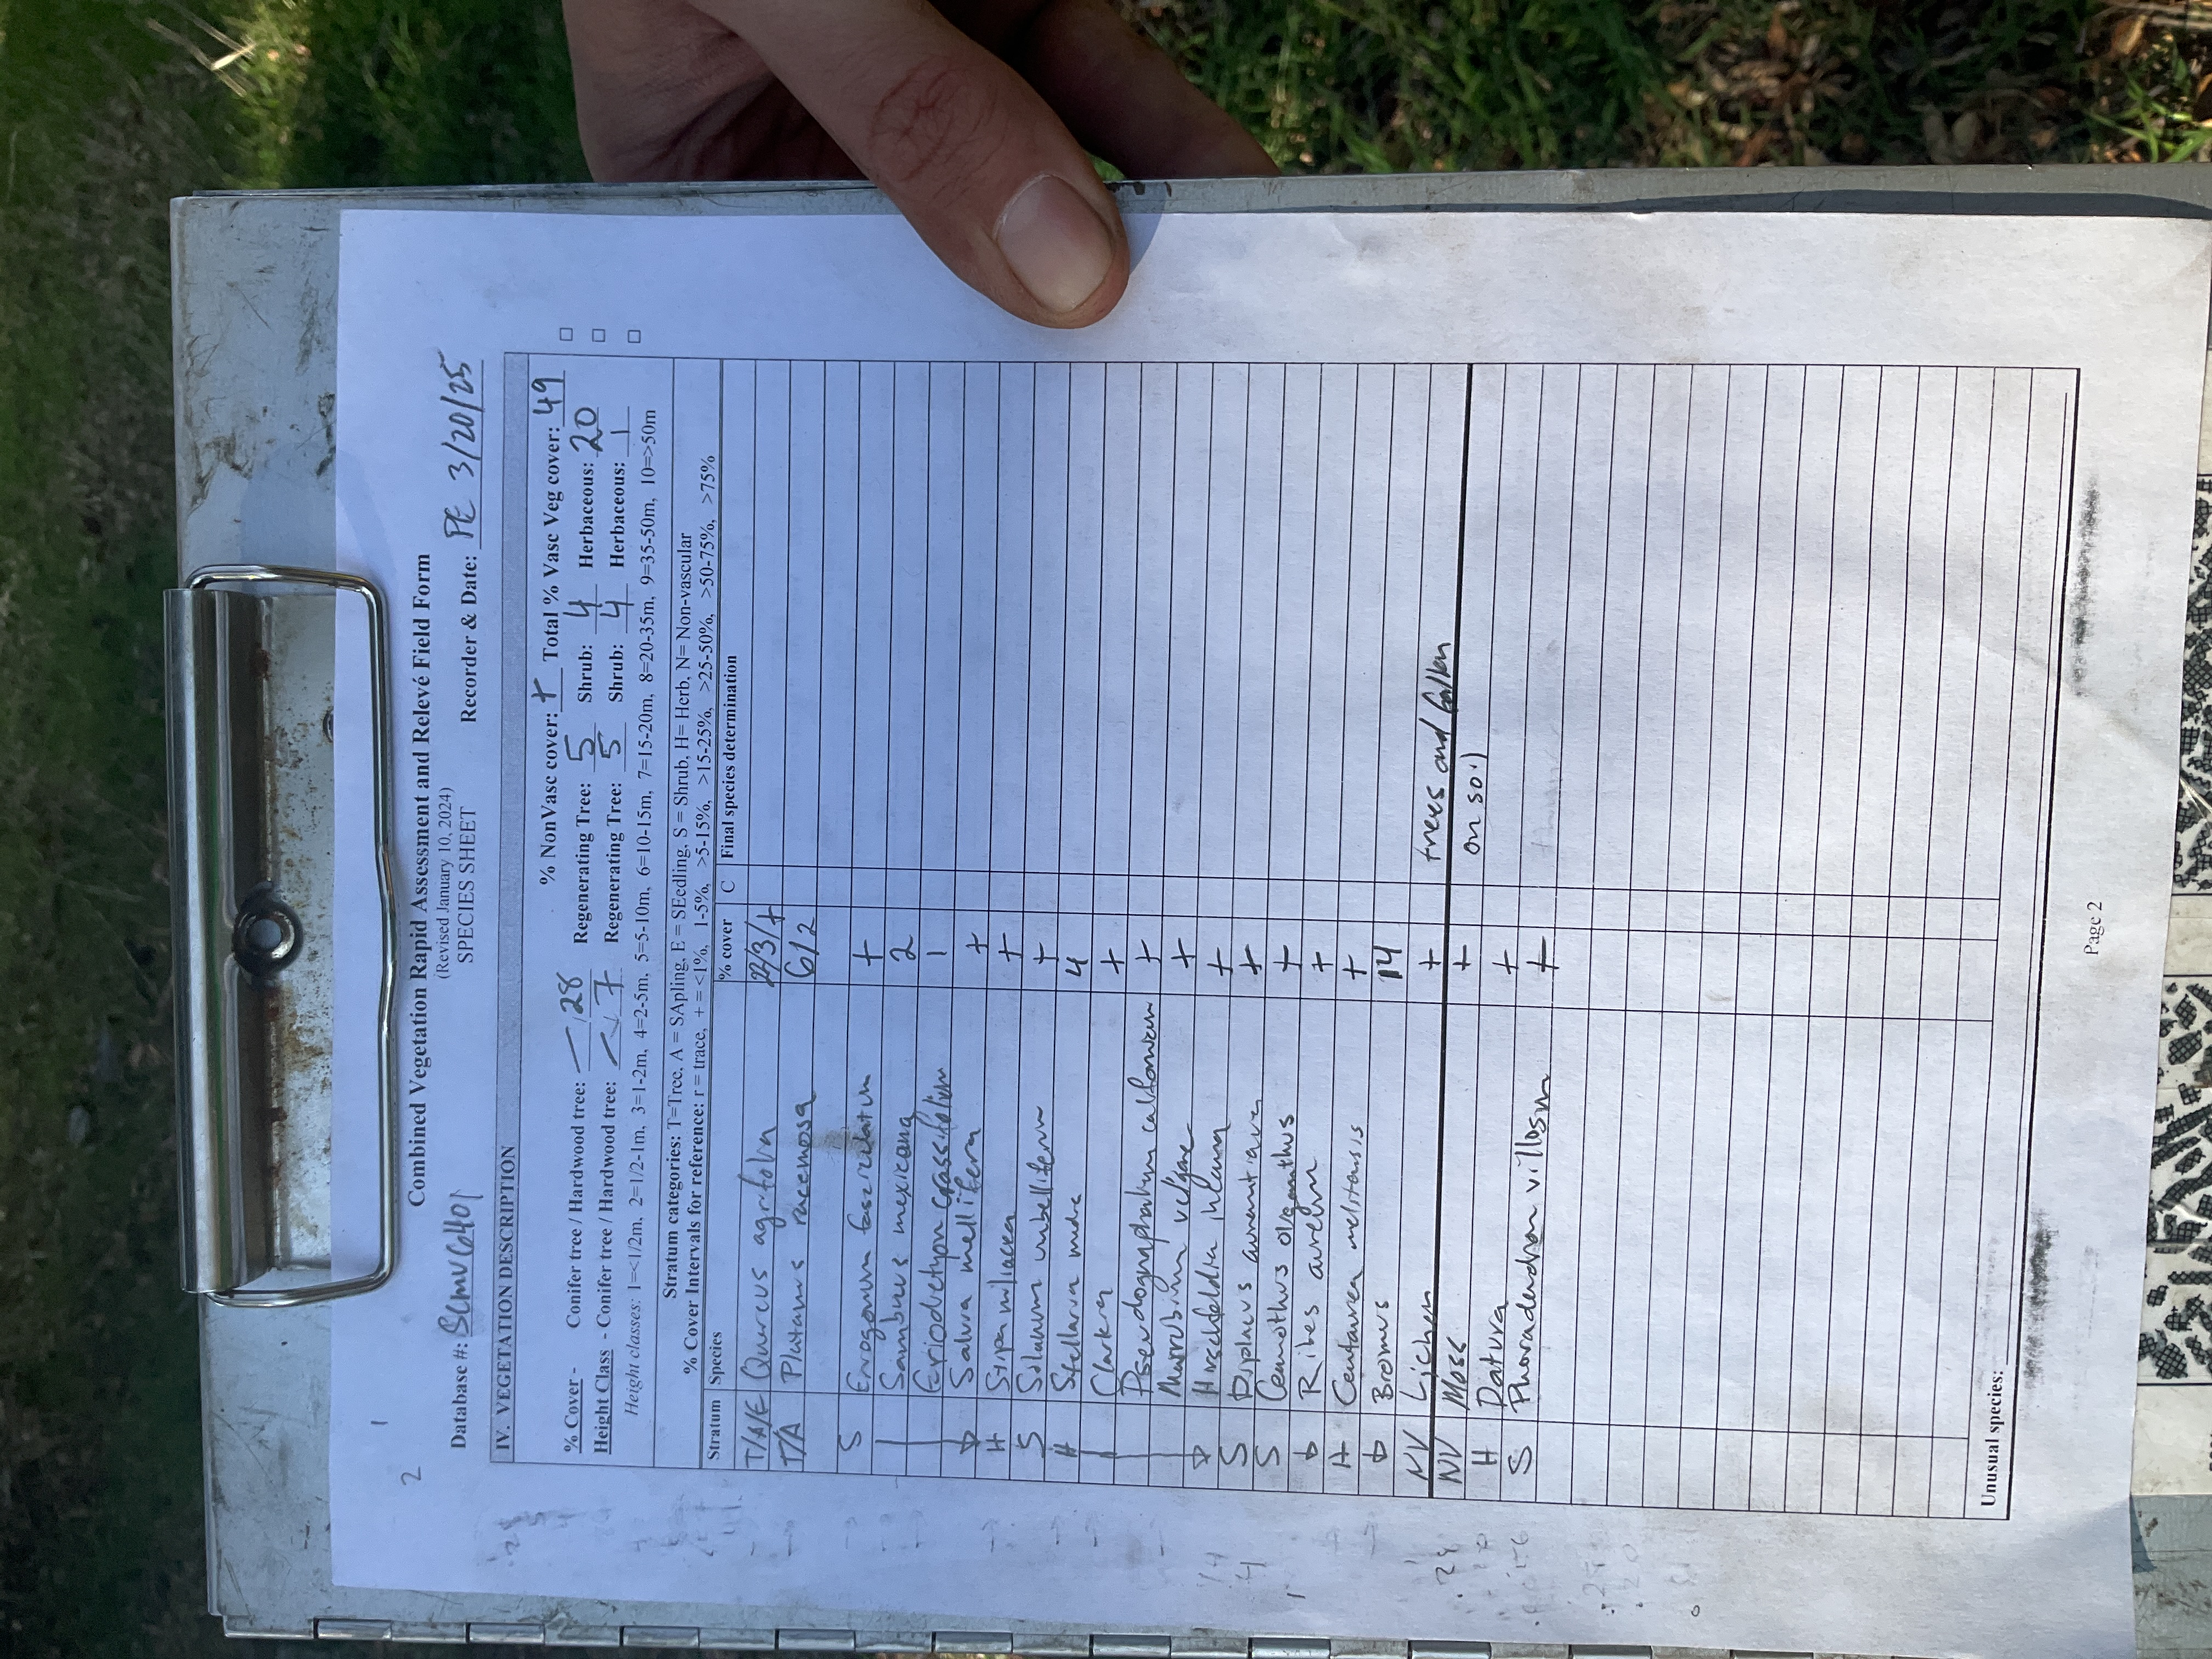 2 1
Combined Vegetation Rapid Assessment and Relevé Field Form
(Revised January 10, 2024)
SPECIES SHEET
Database #: Recorder & Date: PE 3/20/25
IV. VEGETATION DESCRIPTION
% NonVasc cover: + Total % Vasc Veg cover: 49
% Cover - Conifer tree / Hardwood tree: — / 28 Regenerating Tree: 5 Shrub: 4 Herbaceous: 20
Height Class - Conifer tree / Hardwood tree: — / 7 Regenerating Tree: 5 Shrub: 4 Herbaceous: 1
Height classes: 1=<1/2m, 2=1/2-1m, 3=1-2m, 4=2-5m, 5=5-10m, 6=10-15m, 7=15-20m, 8=20-35m, 9=35-50m, 10=>50m
Stratum categories: T=Tree, A = SApling, E = SEedling, S = Shrub, H= Herb, N= Non-vascular
% Cover Intervals for reference: r = trace, + = <1%, 1-5%, >5-15%, >15-25%, >25-50%, >50-75%, >75%
Stratum Species % cover C Final species determination
T/A/E Quercus agrifolia 22/3/+
T/A Platanus racemosa 6/2
S Eriogonum fasciculatum +
Sambucus mexicana 2
Eriodictyon crassifolium 1
Salvia mellifera +
H Stipa miliacea +
S Solanum umbelliferum +
H Stellaria media 4
Clarkia +
Pseudognaphalium californicum +
Marrubium vulgare +
Hirschfeldia incana +
S Diplacus aurantiacus +
S Ceanothus oliganthus +
Ribes aureum +
H Centaurea melitensis +
Bromus 14
NV Lichen + trees and fallen
NV Moss + on soil
H Datura +
S Phoradendron villosum +
Unusual species:
Page 2